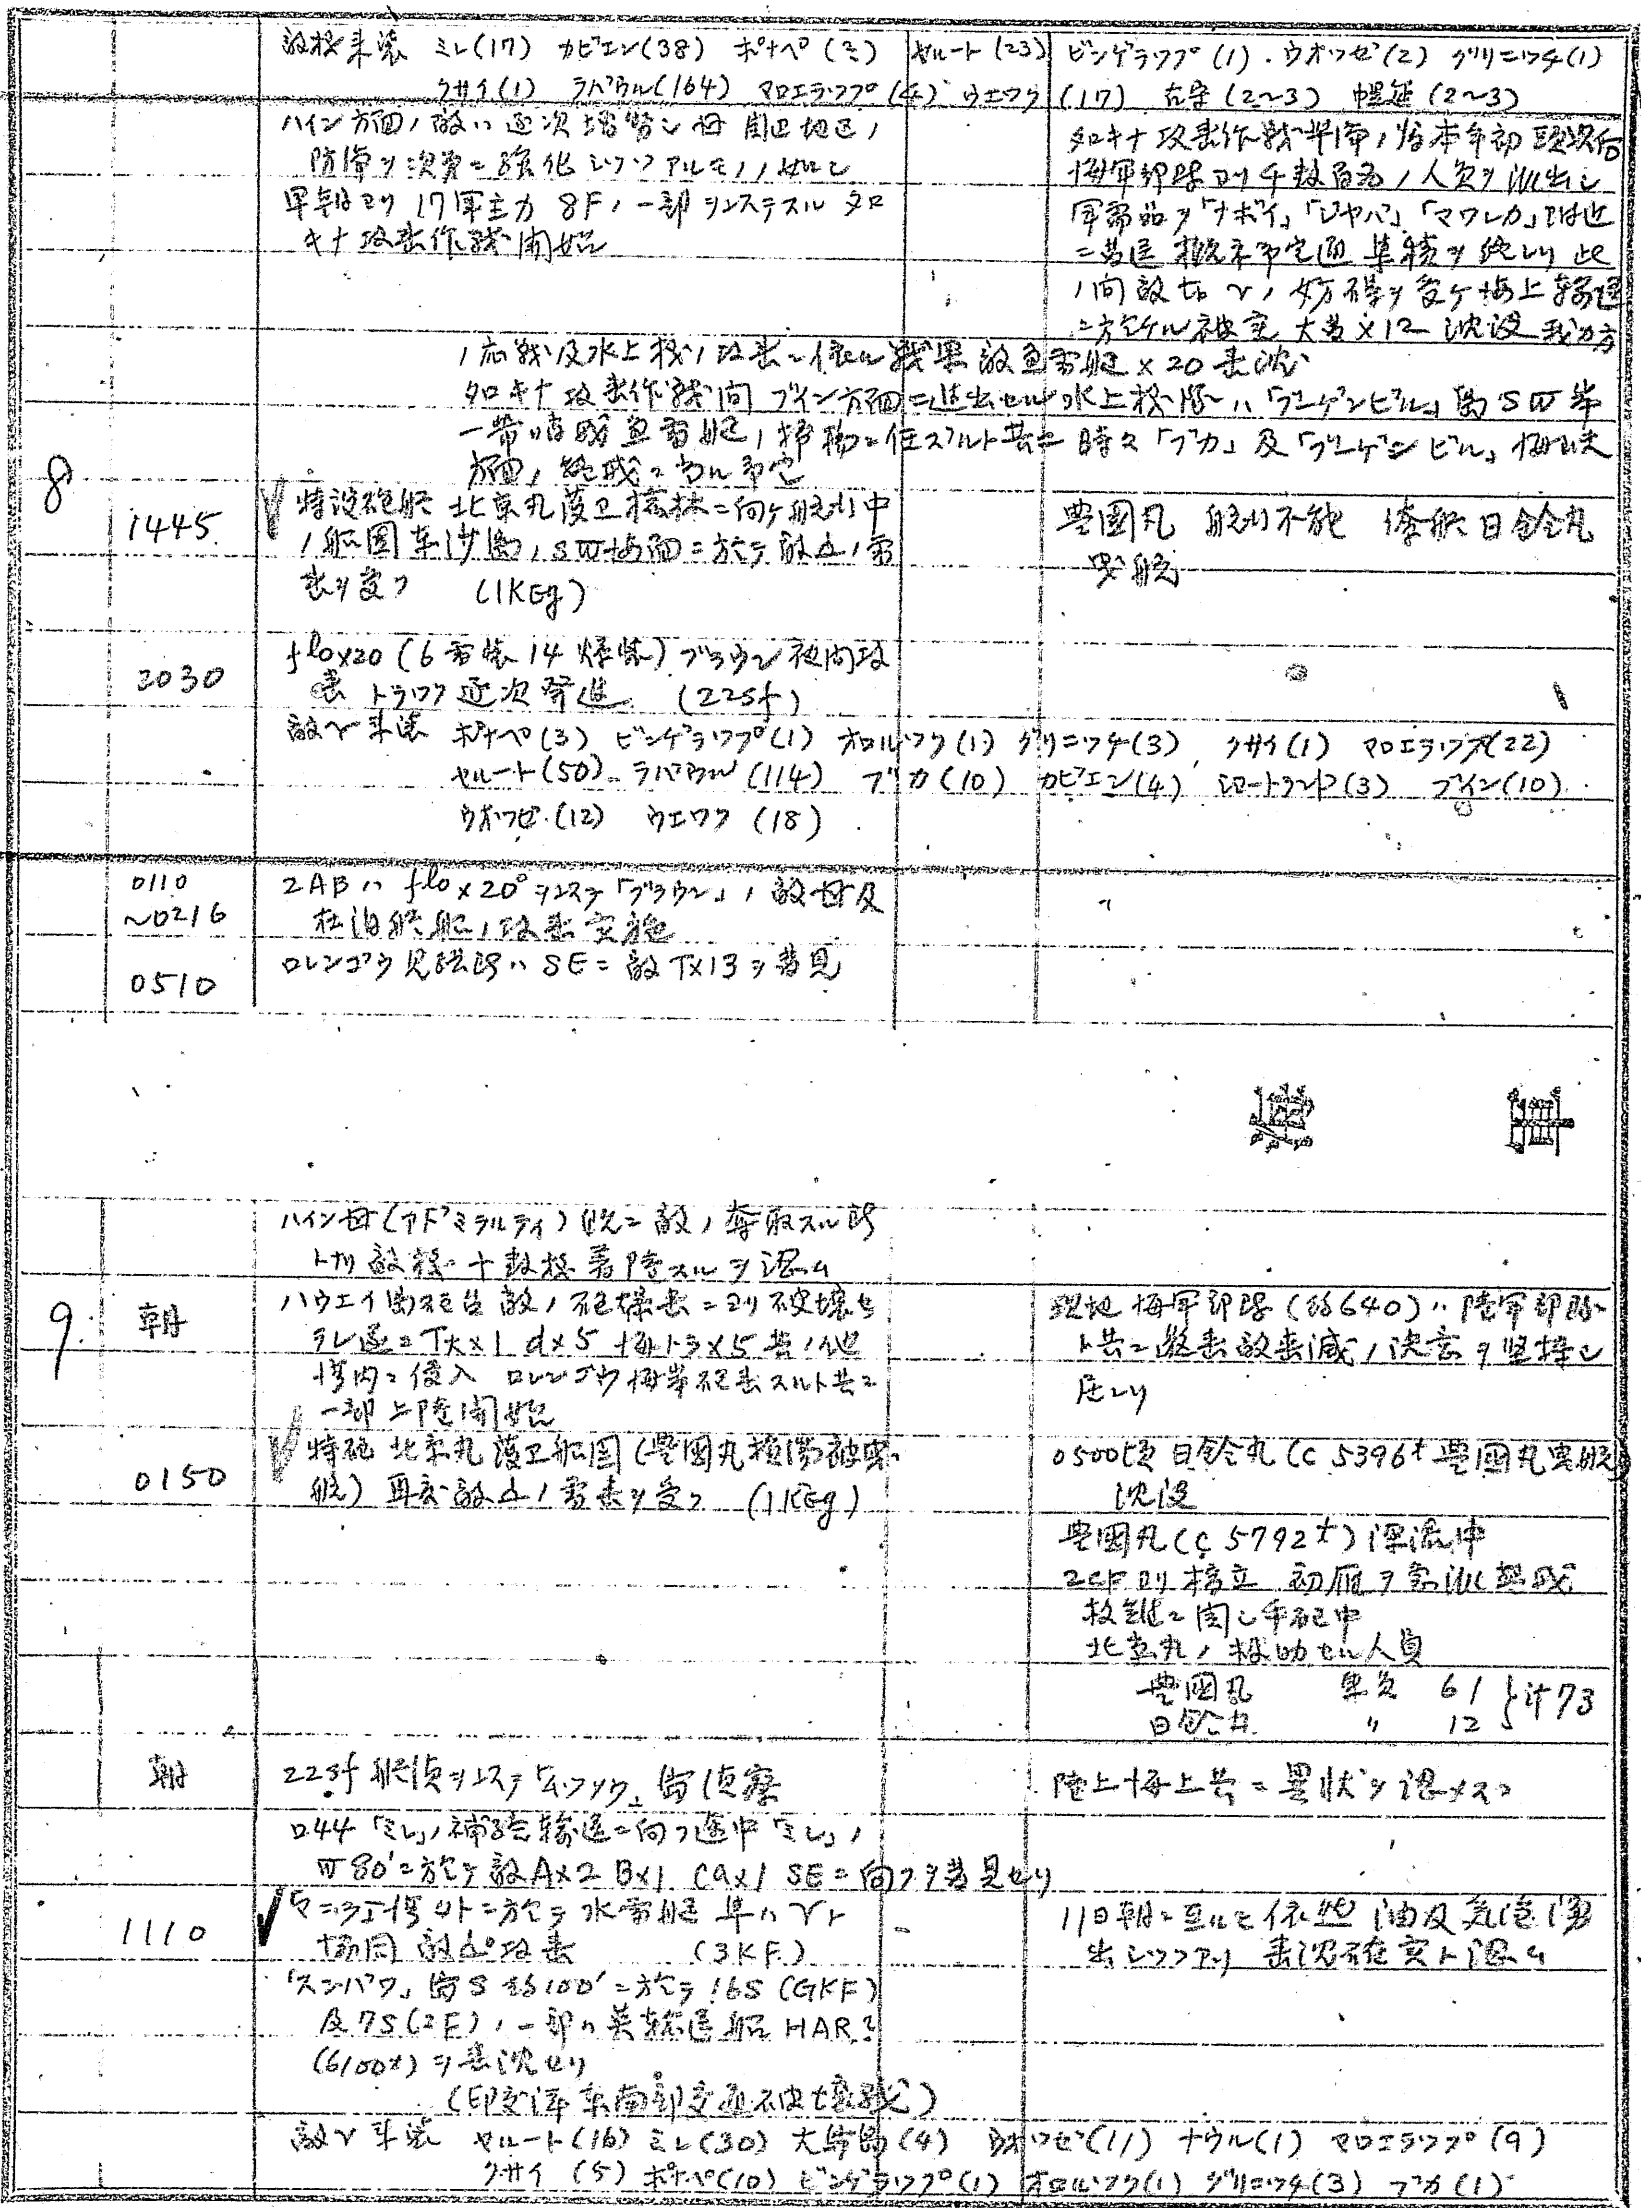 敵機来襲 ミレ(17) カビエン(38) ポナペ(3) ヤルート(23) ビンゲラップ(1)．ウオッゼ(2) グリニッチ(1)
クサイ(1) ラバウル(164) マロエラップ(4) ウエワク(17) 占守(2〜3) 幌筵(2〜3)
ハイン方面ノ敵ハ逐次増勢シ 周辺地区ノ
防備ヲ次第ニ強化シツツアルモノノ如シ
早朝ヨリ17軍主力 8F ノ一部ヲシテスル タロ
キナ攻撃作戦開始
タロキナ攻撃作戦準備ノ為本年初頭以后
海軍部隊ヨリ千数百名ノ人員ヲ派出シ
軍需品ヲ「ナボイ」「ジヤバ」「マワレカ」附近
ニ前送 概ネ予定通集積ヲ終レリ 此
ノ間敵 ノ妨碍ヲ受ケ海上輸送
ニ於ケル被害 大発×12 沈没 我ガ方
ノ応戦及水上機ノ攻撃ニ依ル戦果敵魚雷艇×20 撃沈
タロキナ攻撃作戦間 ブイン方面ニ進出セル水上機隊ハ「ブーゲンビル」島SW岸
一帯 魚雷艇ノ掃蕩ニ任ズルト共ニ 時々「ブカ」及「ブーゲンビル」海峡
方面ノ 戒ニ当ル予定
8
1445
特設砲艦 北京丸護衛 ニ向ケ航行中
ノ船団東沙島ノSW海面ニ於テ敵 ノ雷
撃ヲ受ク (1KEg)
豊国丸 航行不能 僚船日鈴丸
曳航
2030
flo×20 (6雷装 14爆装) ブラウン夜間攻
撃 トラック逐次発進 (22Sf)
敵 来襲 ポナペ(3) ビンゲラップ(1) オロルック(1) グリニッチ(3) クサイ(1) マロエラップ(22)
ヤルート(50) ラバウル(114) ブカ(10) カビエン(4) ショートランド(3) ブイン(10)
ウオッゼ(12) ウエワク(18)
0110
〜0216
2ABハ flo×20ヲ以テ「ブラウン」ノ敵 及
在泊艦船ノ攻撃実施
0510
ロレンゴウ見張所ハ SEニ敵T×13ヲ発見
ハイン (アドミラルティ) 既ニ敵ノ奪取スル所
トナリ敵機十数機着陸スルヲ認ム
9.
朝
ハウエイ島砲台敵ノ砲爆撃ニヨリ破壊セ
ラレ遂ニ ×1 d×5 海トラ×5 其ノ他
港内ニ侵入 ロレンゴウ海岸砲撃スルト共ニ
一部上陸開始
現地海軍部隊(約640)ハ陸軍部隊
ト共ニ 撃敵撃滅ノ決意ヲ堅持シ
居レリ
0150
特砲 北京丸護衛船団(豊国丸損傷被曳
航) 再度敵 ノ雷撃ヲ受ク (1KEg)
0500頃日鈴丸(C 5396t 豊国丸曳航)
沈没
豊国丸(C 5792t) 漂流中
2CFヨリ橋立 初雁ヲ急派
救難ニ関シ手配中
北京丸ノ救助セル人員
豊国丸 軍員 61
日鈴丸 〃 12 } 計73
朝
22Sf 艦偵ヲ以テ「ムッソウ」島偵察
陸上海上共ニ異状ヲ認メズ
ロ44「ミレ」補給輸送ニ向フ途中「ミレ」ノ
W80′ニ於テ敵A×2 B×1 Ca×1 SEニ向フヲ発見セリ
1110
港外ニ於テ水雷艇 隼ハ ト
協同 敵 攻撃 (3KF.)
11日朝ニ至ルモ依然 油及気泡湧
出シツツアリ 撃沈確実ト認ム
「スンバワ」島S約100′ニ於テ16S(GKF)
及7S(2F)ノ一部ハ英輸送船 HAR?
(6100t)ヲ撃沈セリ
(印度洋東南部交通破壊戦)
敵 来襲 ヤルート(16) ミレ(30) 大鳥島(4) ウオッゼ(11) ナウル(1) マロエラップ(9)
クサイ(5) ポナペ(10) ビンゲラップ(1) オロルック(1) グリニッチ(3) ブカ(1)